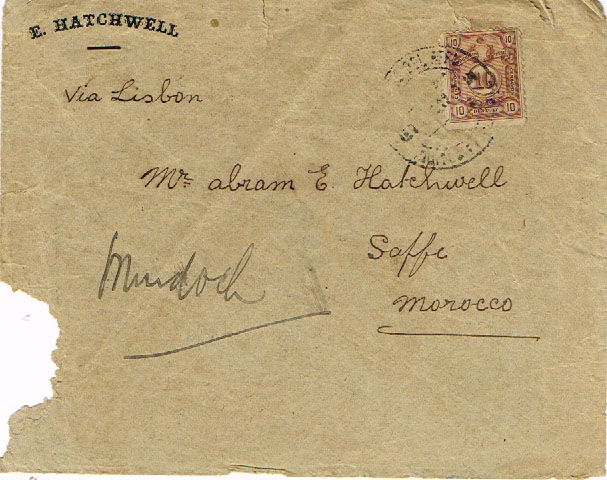 E. HATCHWELL
Via Lisbon
10 10
10
10 10
Mr. abram E. Hatchwell
Saffi
Morocco
Murdoch